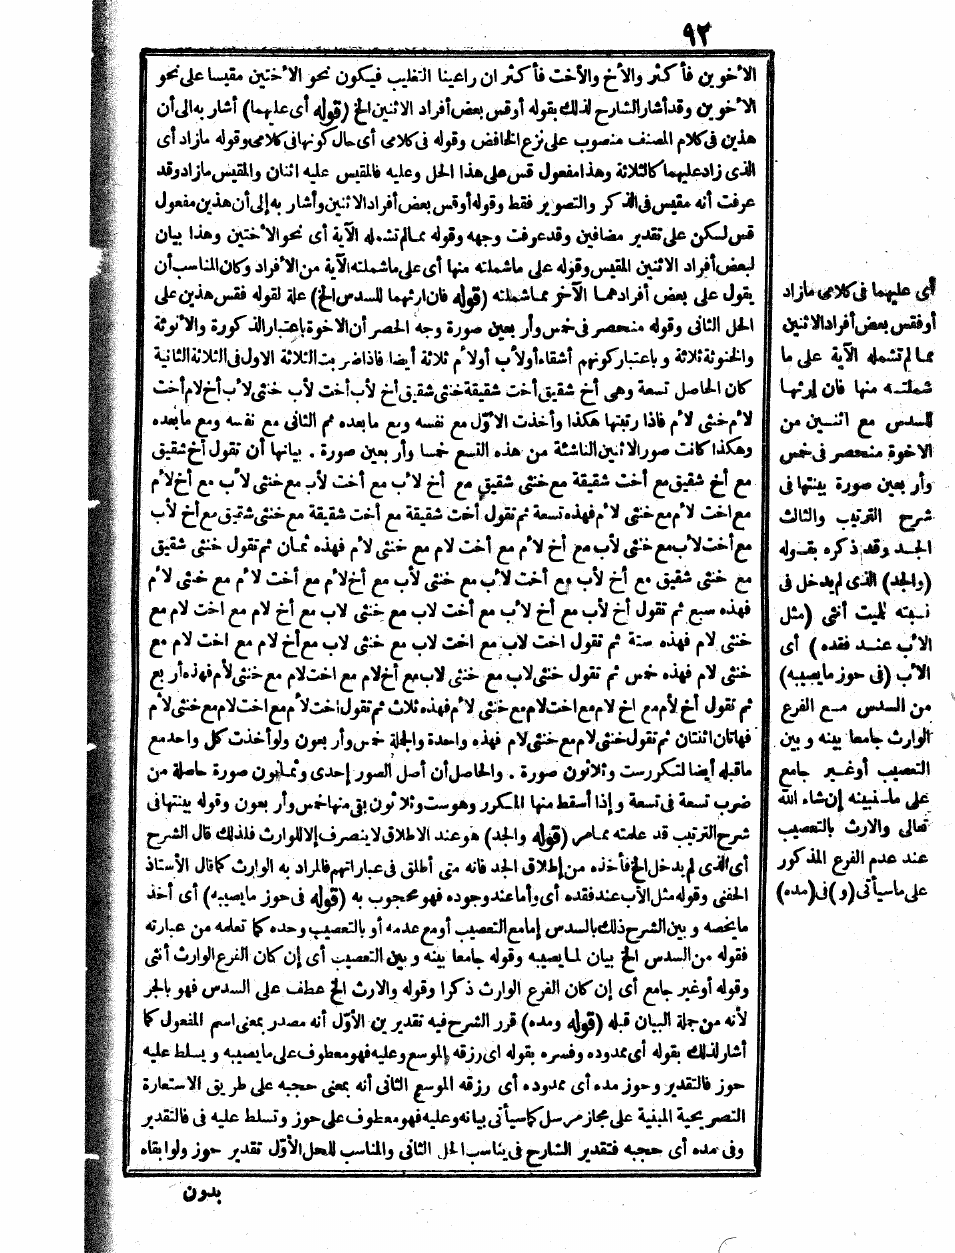 ٩٢
الأخوين فأكثر والأخ والأخت فأكثر ان راعينا التغليب فيكون نحو الأختين مقيسا على نحو
الأخوين وقد أشار الشارح لذلك بقوله أوقس بعض أفراد الاثنين الخ (قوله أى عليهما) أشار به الى أن
هذين فى كلام المصنف منصوب على نزع الخافض وقوله فى كلامى أى حال كونها فى كلامى وقوله مازاد أى
الذى زاد عليهما كالثلاثة وهذا مفعول قس على هذا الحل وعليه فالمقيس عليه اثنان والمقيس مازاد وقد
عرفت أنه مقيس فى الذكر والتصوير فقط وقوله أوقس بعض أفراد الاثنين وأشار به إلى أن هذين مفعول
قس لكن على تقدير مضافين وقد عرفت وجهه وقوله مما لم تشمله الآية أى نحو الأختين وهذا بيان
لبعض أفراد الاثنين المقيس وقوله على ما شملته منها أى على ما شملته الآية من الأفراد وكان المناسب أن
يقول على بعض أفرادهما الآخر مما شملته (قوله فان ارثهما للسدس الخ) علة لقوله فقس هذين على
الحل الثانى وقوله منحصر فى خمس وأربعين صورة وجه الحصر أن الاخوة باعتبار الذكورة والأنوثة
والخنوثة ثلاثة وباعتبار كونهم أشقاء أولأب أولأم ثلاثة أيضا فاذا ضربت الثلاثة الاول فى الثلاثة الثانية
كان الحاصل تسعة وهى أخ شقيق أخت شقيقة خنثى شقيق أخ لأب أخت لأب خنثى لأب أخ لأم أخت
لأم خنثى لأم فاذا رتبتها هكذا وأخذت الأوّل مع نفسه ومع مابعده ثم الثانى مع نفسه ومع مابعده
وهكذا كانت صور الاثنين الناشئة من هذه التسع خمسا وأربعين صورة . بيانها أن تقول أخ شقيق
مع أخ شقيق مع أخت شقيقة مع خنثى شقيق مع أخ لأب مع أخت لأب مع خنثى لأب مع أخ لأم
مع اخت لأم مع خنثى لأم فهذه تسعة ثم تقول أخت شقيقة مع أخت شقيقة مع خنثى شقيق مع أخ لأب
مع أخت لأب مع خنثى لأب مع أخ لأم مع أخت لام مع خنثى لأم فهذه ثمان ثم تقول خنثى شقيق
مع خنثى شقيق مع أخ لأب مع أخت لأب مع خنثى لأب مع أخ لأم مع اخت لأم مع خنثى لأم
فهذه سبع ثم تقول أخ لأب مع أخ لأب مع أخت لاب مع خنثى لاب مع أخ لام مع اخت لام مع
خنثى لام فهذه ستة ثم تقول اخت لاب مع اخت لاب مع خنثى لاب مع أخ لام مع اخت لام مع
خنثى لام فهذه خمس ثم تقول خنثى لاب مع خنثى لاب مع أخ لام مع اخت لام مع خنثى لأم فهذه أربع
ثم تقول أخ لأم مع اخ لام مع اخت لام مع خنثى لأم فهذه ثلاث ثم تقول اخت لأم مع اخت لام مع خنثى لأم
فهاتان اثنتان ثم تقول خنثى لام مع خنثى لام فهذه واحدة والجملة خمس وأربعون ولو أخذت كل واحد مع
ماقبله أيضا لتكررت ست وثلاثون صورة . والحاصل أن أصل الصور إحدى وثمانون صورة حاصلة من
ضرب تسعة فى تسعة وإذا أسقط منها المكرر وهو ست وثلاثون بقى منها خمس وأربعون وقوله بينتها فى
شرح الترتيب قد علمته مما مر (قوله والجد) هو عند الاطلاق لا ينصرف إلا للوارث فلذلك قال الشرح
أى الذى لم يدخل الخ فأخذه من إطلاق الجد فانه متى أطلق فى عباراتهم فالمراد به الوارث كما قال الأستاذ
الحفنى وقوله مثل الأب عند فقده أى وأما عند وجوده فهو محجوب به (قوله فى حوز مايصيبه) أى أخذ
مايخصه وبين الشرح ذلك بالسدس إما مع التعصيب أو مع عدمه أو بالتعصيب وحده كما تعلمه من عبارته
فقوله من السدس الخ بيان لما يصيبه وقوله جامعا بينه وبين التعصيب أى إن كان الفرع الوارث أنثى
وقوله أو غير جامع أى إن كان الفرع الوارث ذكرا وقوله والارث الخ عطف على السدس فهو بالجر
لأنه من جملة البيان قبله (قوله ومده) قرر الشرح فيه تقديرين الأوّل أنه مصدر بمعنى اسم المفعول كما
أشار لذلك بقوله أى ممدوده وفسره بقوله اى رزقه الموسع وعليه فهو معطوف على ما يصيبه ويسلط عليه
حوز فالتقدير وحوز مده أى ممدوده أى رزقه الموسع الثانى أنه بمعنى حجبه على طريق الاستعارة
التصريحية المبنية على مجاز مرسل كما سيأتى بيانه وعليه فهو معطوف على حوز وتسلط عليه فى فالتقدير
وفى مده أى حجبه فتقدير الشارح فى يناسب الحل الثانى والمناسب للحل الأوّل تقدير حوز ولو ابقاه
بدون
أى عليهما فى كلامى مازاد
أو فقس بعض أفراد الاثنين
مما لم تشمله الآية على ما
شملته منها فان إرثها
للسدس مع اثنين من
الاخوة منحصر فى خمس
وأربعين صورة بينتها فى
شرح الترتيب والثالث
الجد وقد ذكره بقوله
(والجد) الذى لم يدخل فى
نسبته للميت أنثى (مثل
الأب عند فقده) أى
الأب (فى حوز مايصيبه)
من السدس مع الفرع
الوارث جامعا بينه وبين
التعصيب أو غير جامع
على ما سنبينه إن شاء الله
تعالى والارث بالتعصيب
عند عدم الفرع المذكور
على ما سيأتى (و) فى (مده)